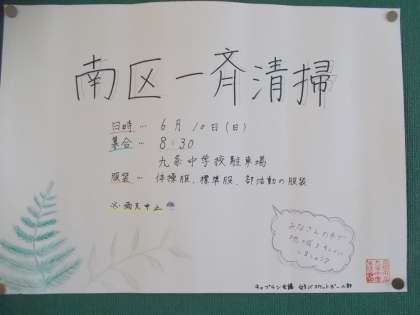 南区一斉清掃
日時… 6月10日(日)
集合… 8:30
九条中学校駐車場
服装… 体操服、標準服、部活動の服装
※雨天中止
みなさんの手で
地域をきれいに
しましょう?